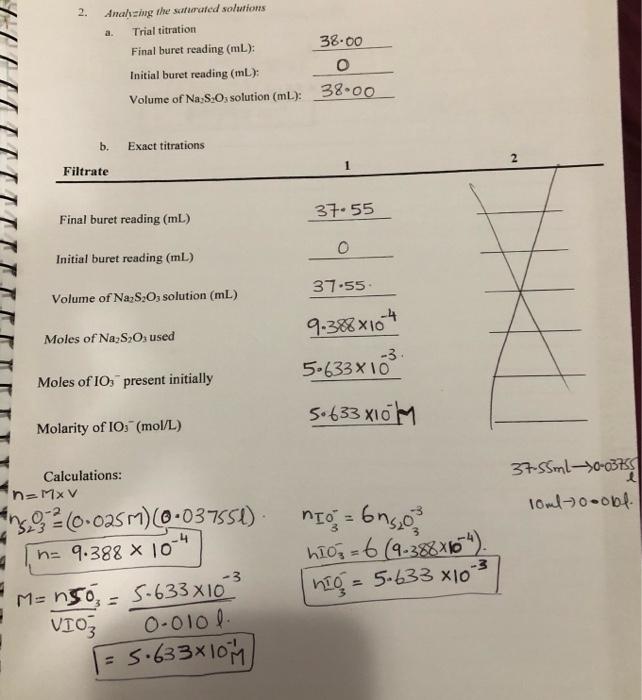 2. Analyzing the saturated solutions
a. Trial titration
Final buret reading (mL): 38.00
Initial buret reading (mL): 0
Volume of Na₂S₂O₃ solution (mL): 38.00
b. Exact titrations
Filtrate 1 2
Final buret reading (mL) 37.55
Initial buret reading (mL) 0
Volume of Na₂S₂O₃ solution (mL) 37.55
Moles of Na₂S₂O₃ used 9.388 x 10⁻⁴
Moles of IO₃⁻ present initially 5.633 x 10⁻³
Molarity of IO₃⁻ (mol/L) 5.633 x 10⁻¹ M
Calculations:
37.55ml → 0.03755 l
10ml → 0.010 l.
n = M x V
n S₂O₃⁻² = (0.025M) (0.03755 l).
n = 9.388 x 10⁻⁴
M = nIO₃⁻ / VIO₃⁻ = 5.633 x 10⁻³ / 0.010 l.
= 5.633 x 10⁻¹ M
nIO₃⁻ = 6 nS₂O₃⁻³
nIO₃⁻ = 6 (9.388 x 10⁻⁴).
nIO₃⁻ = 5.633 x 10⁻³